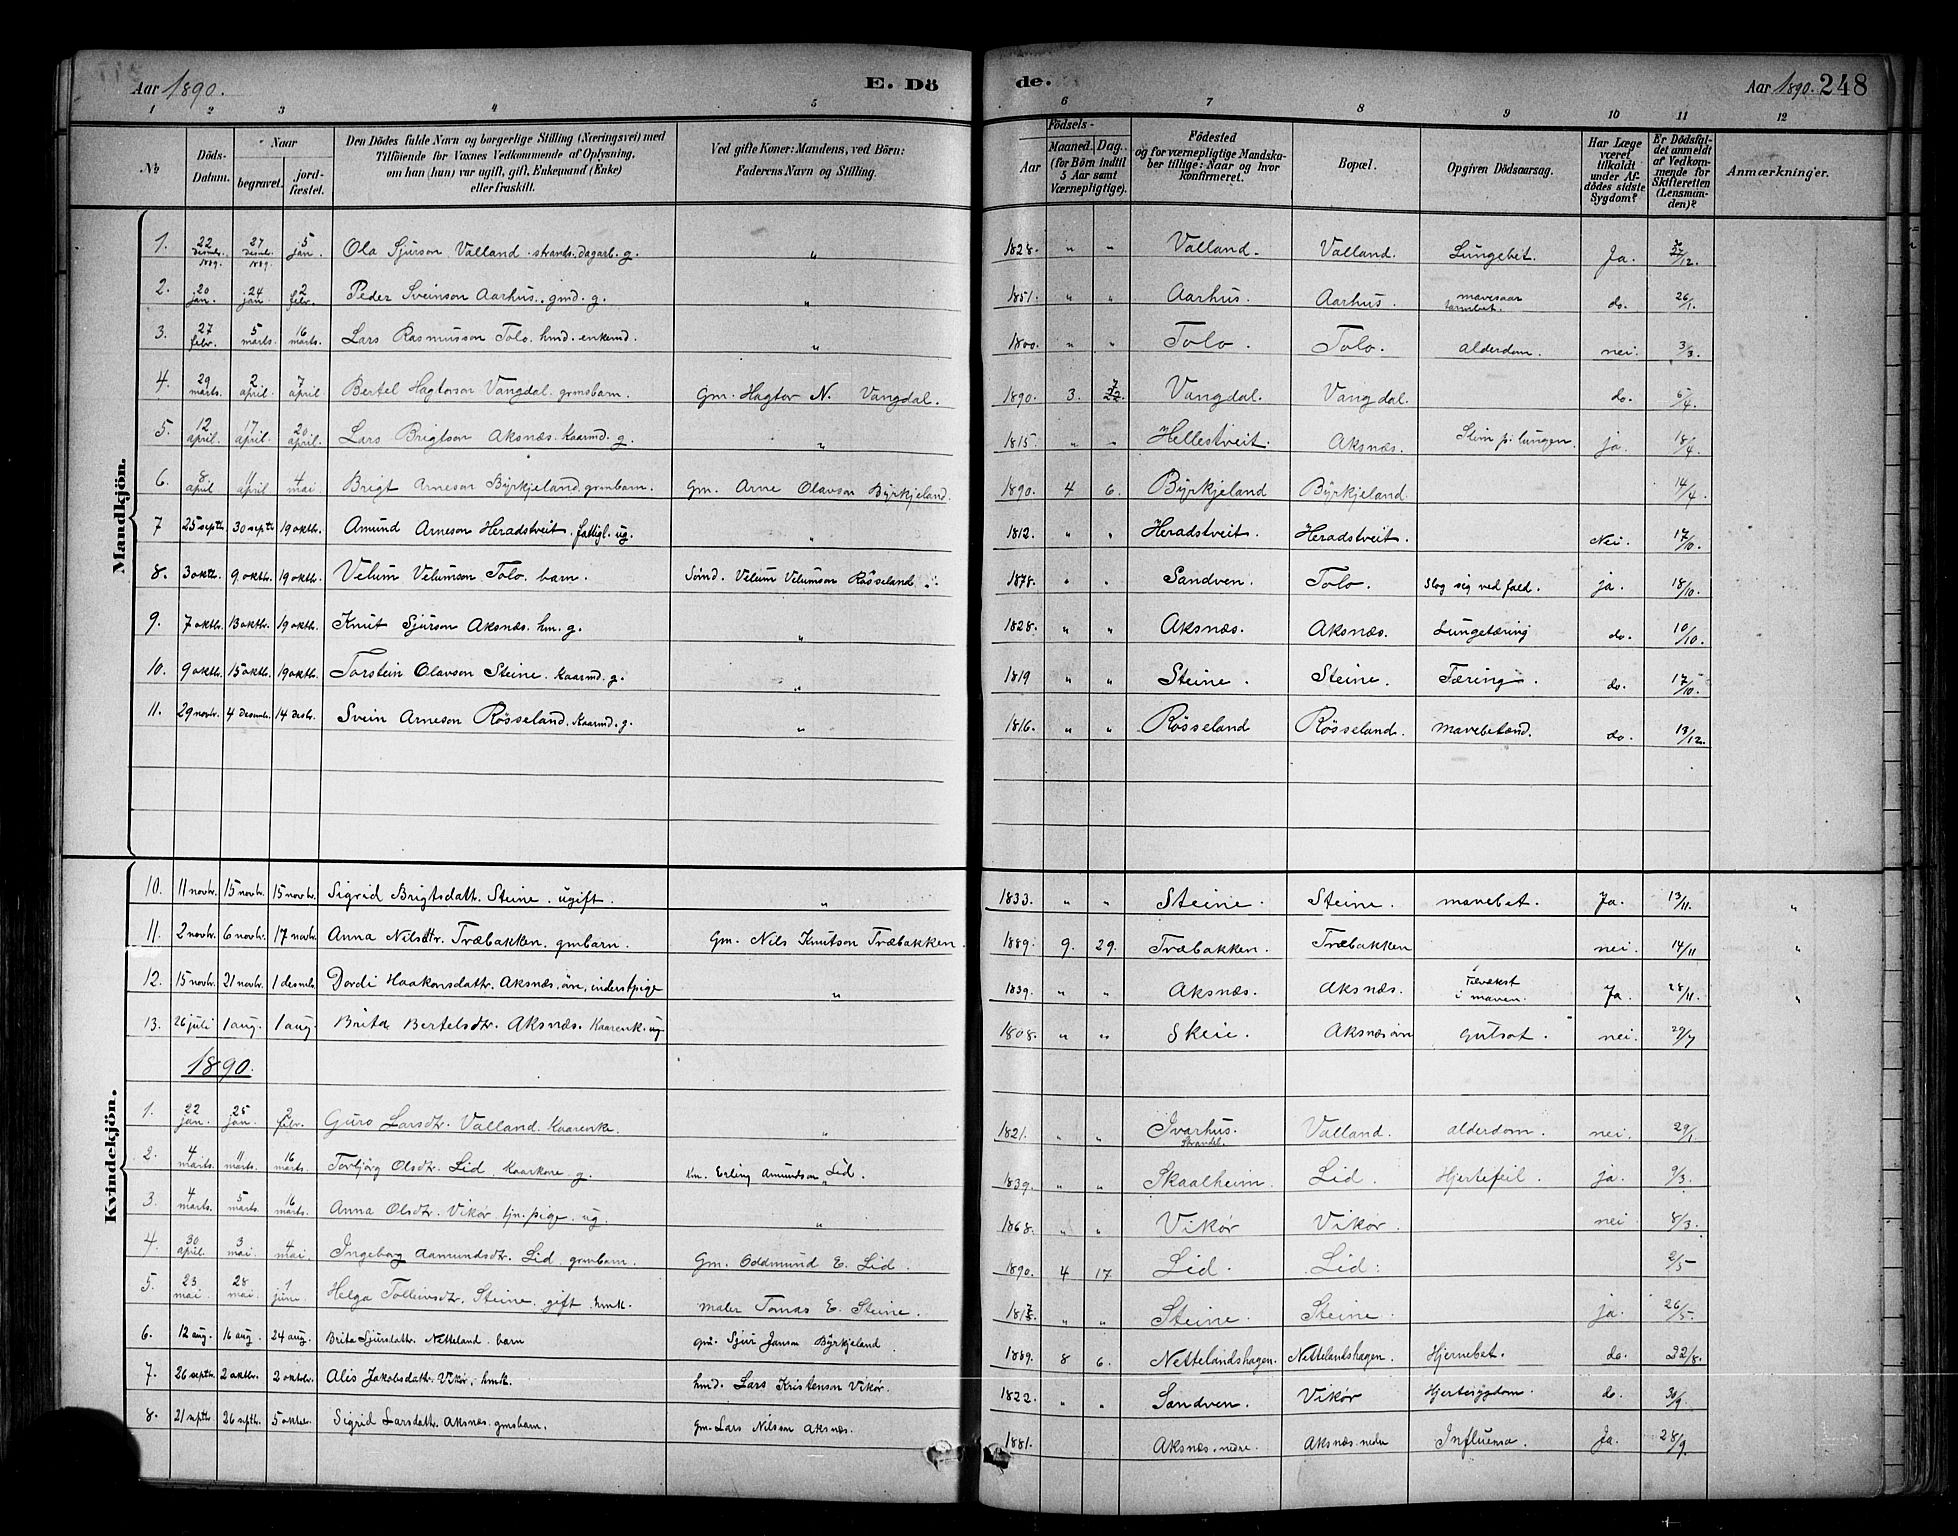 Aar 1890. E. Döde. Aar 1890. 248
1 2 3 4 5 6 7 8 9 10 11 12
No
Döds-Datum.
Naar
begravet.
jord-fæstet.
Den Dödes fulde Navn og borgerlige Stilling (Næringsvei) med
Tilföiende for Voxnes Vedkommende af Oplysning,
om han (hun) var ugift, gift, Enkemand (Enke)
eller fraskilt.
Ved gifte Koner: Mandens, ved Börn:
Faderens Navn og Stilling.
Födsels-
Aar
Maaned. Dag.
(for Börn indtil
5 Aar samt
Værnepligtige).
Födested
og for værnepligtige Mandska-
ber tillige: Naar og hvor
konfirmeret.
Bopæl.
Opgiven Dödsaarsag.
Har Læge
været
tilkaldt
under Af-
dödes sidste
Sygdom?
Er Dödsfal-
det anmeldt
af Vedkom-
mende for
Skifteretten
(Lensman-
den)?
Anmærkninger.
Mandkjön.
1. 22 desmbr. 1889. 27 desmbr. 1889. 5 jan. Ola Sjurson Valland. strands. dagarb. g. " 1828. " " Valland. Valland. Lungebet. Ja. 7/12.
2. 20 jan. 24 jan 2 febr. Peder Sveinson Aarhus. gmd. g. " 1851. " " Aarhus. Aarhus. mavesaar tarmbet. do. 26/1.
3. 27 febr. 5 marts. 16 marts. Lars Rasmusson Tolo. hmd. enkemd. " 1800. " " Tolo. Tolo. alderdom. nei. 3/3.
4. 29 marts. 2 april. 7 april. Bertel Hagtorson Vangdal. grmsbarn. Gm. Hagtor N. Vangdal. 1890. 3. 7 Vangdal. Vangdal. do. 5/4.
5. 12 april. 17 april. 20 april. Lars Brigtson Aksnæs. Kaarmd. g. " 1815. " " Hellestveit. Aksnæs. Slim p. lungen. ja. 18/4.
6. 8 april 11 april 4 mai. Brigt Arneson Byrkjeland. grmbarn. Gm. Arne Olavson Byrkjeland. 1890. 4 6. Byrkjeland Byrkjeland. 14/4.
7 25 septbr. 30 septbr 19 oktb. Amund Arneson Heradstveit. fattigl. ug. " 1812. " " Heradstveit. Heradstveit. Nei. 17/10.
8. 3 oktb. 9 oktb. 19 oktb. Velum Velumson Tolo. barn. Sømd. Velum Velumson Røsseland. 1878. " " Sandven. Tolo. slog sig ved fald. ja. 18/10.
9. 7 oktb. 13 oktb. 19 oktb. Knut Sjurson Aksnæs. hm. g. " 1828. " " Aksnæs. Aksnæs. Lungetæring do. 10/10.
10. 9 oktb. 15 oktb. 19 oktb. Torstein Olavson Steine. Kaarmd. g. " 1819 " " Steine. Steine. Tæring. do. 17/10.
11. 29 novbr. 4 desmbr. 14 desbr. Svein Arneson Røsseland. Kaarmd. g. " 1816. " " Røsseland Røsseland. Mavebetænd. do. 13/12.
Kvindekjön.
10. 11 novbr. 15 novbr. 15 novbr. Sigrid Brigtsdatt. Steine. ugift. " 1833. " " Steine. Steine. mavebet. Ja. 13/11. "
11. 2 novbr. 6 novbr. 17 novbr. Anna Nilsdtr. Træbakken. gmbarn. Gm. Nils Knutson Træbakken. 1889. 9. 29. Træbakken. Træbakken nei. 14/11 "
12. 15 novbr. 21 novbr. 1 desmbr. Dordi Haakonsdatr. Aksnæs, øn, inderstpige " 1839. " " Aksnæs. Aksnæs. Tilvækst i maven. Ja. 28/11. "
13. 26 juli 1 aug. 1 aug. Brita Bertelsdtr. Aksnæs. Kaarenk. ug 1808. " " Skeie. Aksnæsøn Gulsot. nei. 29/7
1890.
1. 22 jan. 25 jan. 2 febr. Guro Larsdtr. Valland. Kaarenke. " 1821. " " Ivarhus. Strandeb. Valland. alderdom. nei. 29/1
2. 4 marts. 11 marts. 16 marts. Torbjørg Olsdtr. Lid Kaarkone g. Km. Erling Amundson Lid. 1839. " " Skaalheim. Lid. Hjertefeil. ja. 9/3.
3. 4 marts. 5 marts. 16 marts. Anna Olsdtr. Vikør tjn. pige. ug. " 1868. " " Vikør Vikør. nei 8/3.
4. 30 april. 3 mai. 4 mai. Ingeborg Aamundsdtr. Lid. grmbarn. Gm. Oddmund E. Lid. 1890. 4 17. Lid. Lid. 2/5
5. 23 mai 28 mai. 1 june. Helga Tolleivsdtr. Steine. gift. hmk. maler Tomas E. Steine. 1817 " " Steine. Steine. ja. 26/5.
6. 12 aug. 16 aug. 24 aug. Brita Sjursdattr. Netteland. barn gm. Sjur Janson Byrkjeland. 1889. 8 6. Nettelandshagen. Nettelandshagen. Hjernebet. do. 22/8.
7. 26 septbr. 2 oktbr. 2 oktobr. Alis Jakobsdattr. Vikør. hmk. hmd. Lars Kristenson Vikør. 1822. " " Sandven. Vikør Hjertesygdom. do. 30/9
8. 21 septbr. 26 septbr. 5 oktobr. Sigrid Larsdattr. Aksnæs. gmsbarn. Gm. Lars Nilsson Aksnæs. 1881. Aksnæs. nedre. Aksnæs. nedre Influensa. Ja. 28/9.